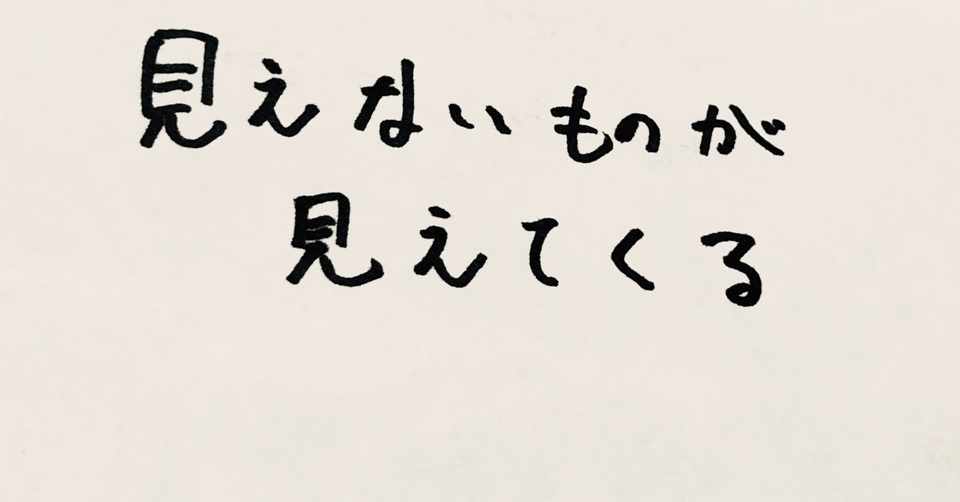 見えないものが
見えてくる